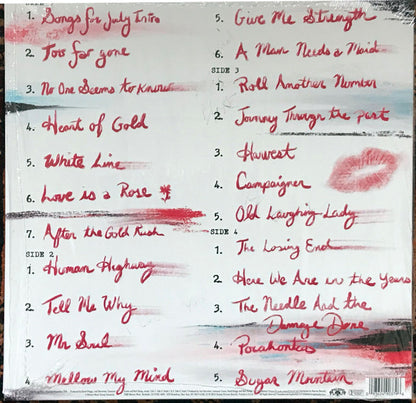 1. Songs for July Intro
2. Too far gone
3. No One Seems to Know
4. Heart of Gold
5. White Line
6. Love is a Rose
7. After the Gold Rush
SIDE 2
1. Human Highway
2. Tell Me Why
3. Mr Soul
4. Mellow My Mind
5. Give Me Strength
6. A Man Needs a Maid
SIDE 3
1. Roll Another Number
2. Journey Through the past
3. Harvest
4. Campaigner
5. Old Laughing Lady
SIDE 4
1. The Losing End
2. Here We Are in the Years
3. The Needle And the
Damage Done
4. Pocahontas
5. Sugar Mountain